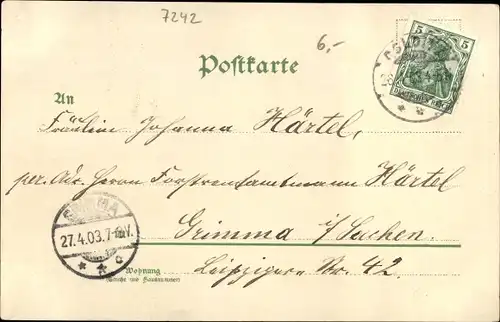 7242
6,-
5 5
DEUTSCHES REICH
Postkarte
An
Fräulein Johanna Härtel,
per. Adr. Herrn Forstrentamtmann Härtel
GRIMMA
27.4.03.7-8V.
Grimma i/Sachsen.
Wohnung
(Straße und Hausnummer)
Leipziger Str. 42.